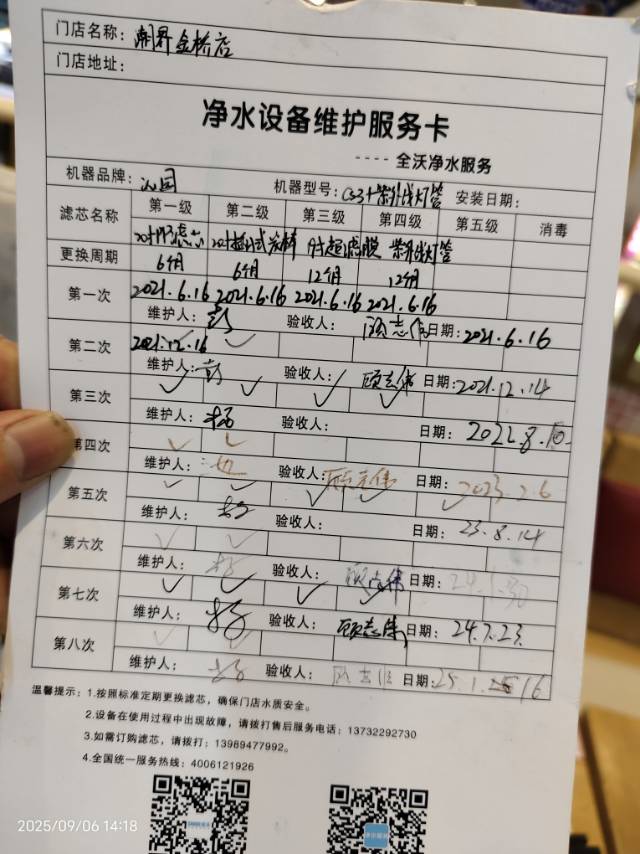 门店名称： 金桥店
门店地址：
净水设备维护服务卡
---- 全沃净水服务
机器品牌： 机器型号： 紫外线灯管 安装日期：
滤芯名称 第一级 第二级 第三级 第四级 第五级 消毒
20寸 滤芯 20寸 超滤膜 紫外线灯管
更换周期 6个月 6个月 12个月 12个月
第一次 2021.6.16 2021.6.16 2021.6.16 2021.6.16
维护人：彭 验收人：顾志伟 日期：2021.6.16
第二次 2021.12.16
维护人：彭 验收人：顾志伟 日期：2021.12.14
第三次
维护人：杨 验收人： 日期：2022.8.
第四次
维护人： 验收人：顾志伟 日期：2023.2.6
第五次
维护人： 验收人： 日期：23.8.14
第六次
维护人：杨 验收人：顾志伟 日期：24.1.30
第七次
维护人： 验收人：顾志伟 日期：24.7.23
第八次
维护人： 验收人：顾志伟 日期：25.1. 16
温馨提示：1.按照标准定期更换滤芯，确保门店水质安全。
2.设备在使用过程中出现故障，请拨打售后服务电话：13732292730
3.如需订购滤芯，请拨打：13989477992。
4.全国统一服务热线：4006121926
2025/09/06 14:18